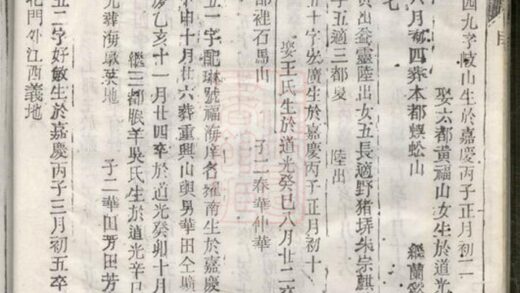 四九字岐山生於嘉慶丙子正月初二
娶六都黃福山女生於道光
八月初四葬本都蜈蚣山
繼蘭
七
出 靈陸出女五長適野猪塝朱宗麒
子五適三都
陸出
五十字宏廣生於嘉慶丙子正月初十
娶王氏生於道光癸巳八月廿二卒
部裡石馬山
子二春華仲華
五一字配琳號福海庠名 南生於嘉慶
申十月廿六葬重興山與男華田仝
乙亥十一月廿四卒於道光癸卯十月
繼三都 羊吳氏生於道光辛
海墩菜地
子二華田芳田芳
五二字好敏生於嘉慶丙子三月初五卒
北門外江西義地